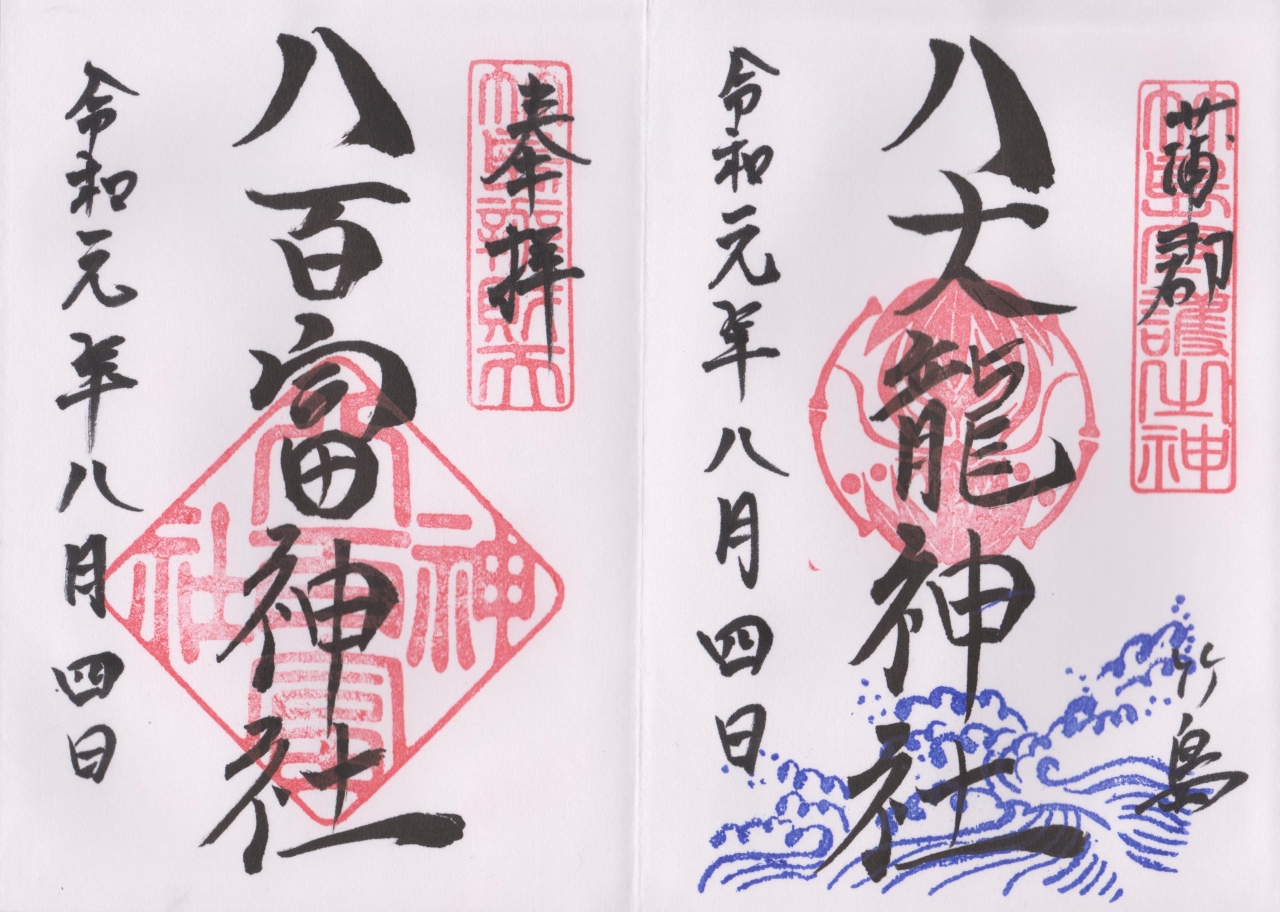 蒲郡
竹島
竹島守護之神
八大龍神社
令和元年八月四日
奉拝
竹島辨財天
八百富神社
八百富神社
令和元年八月四日